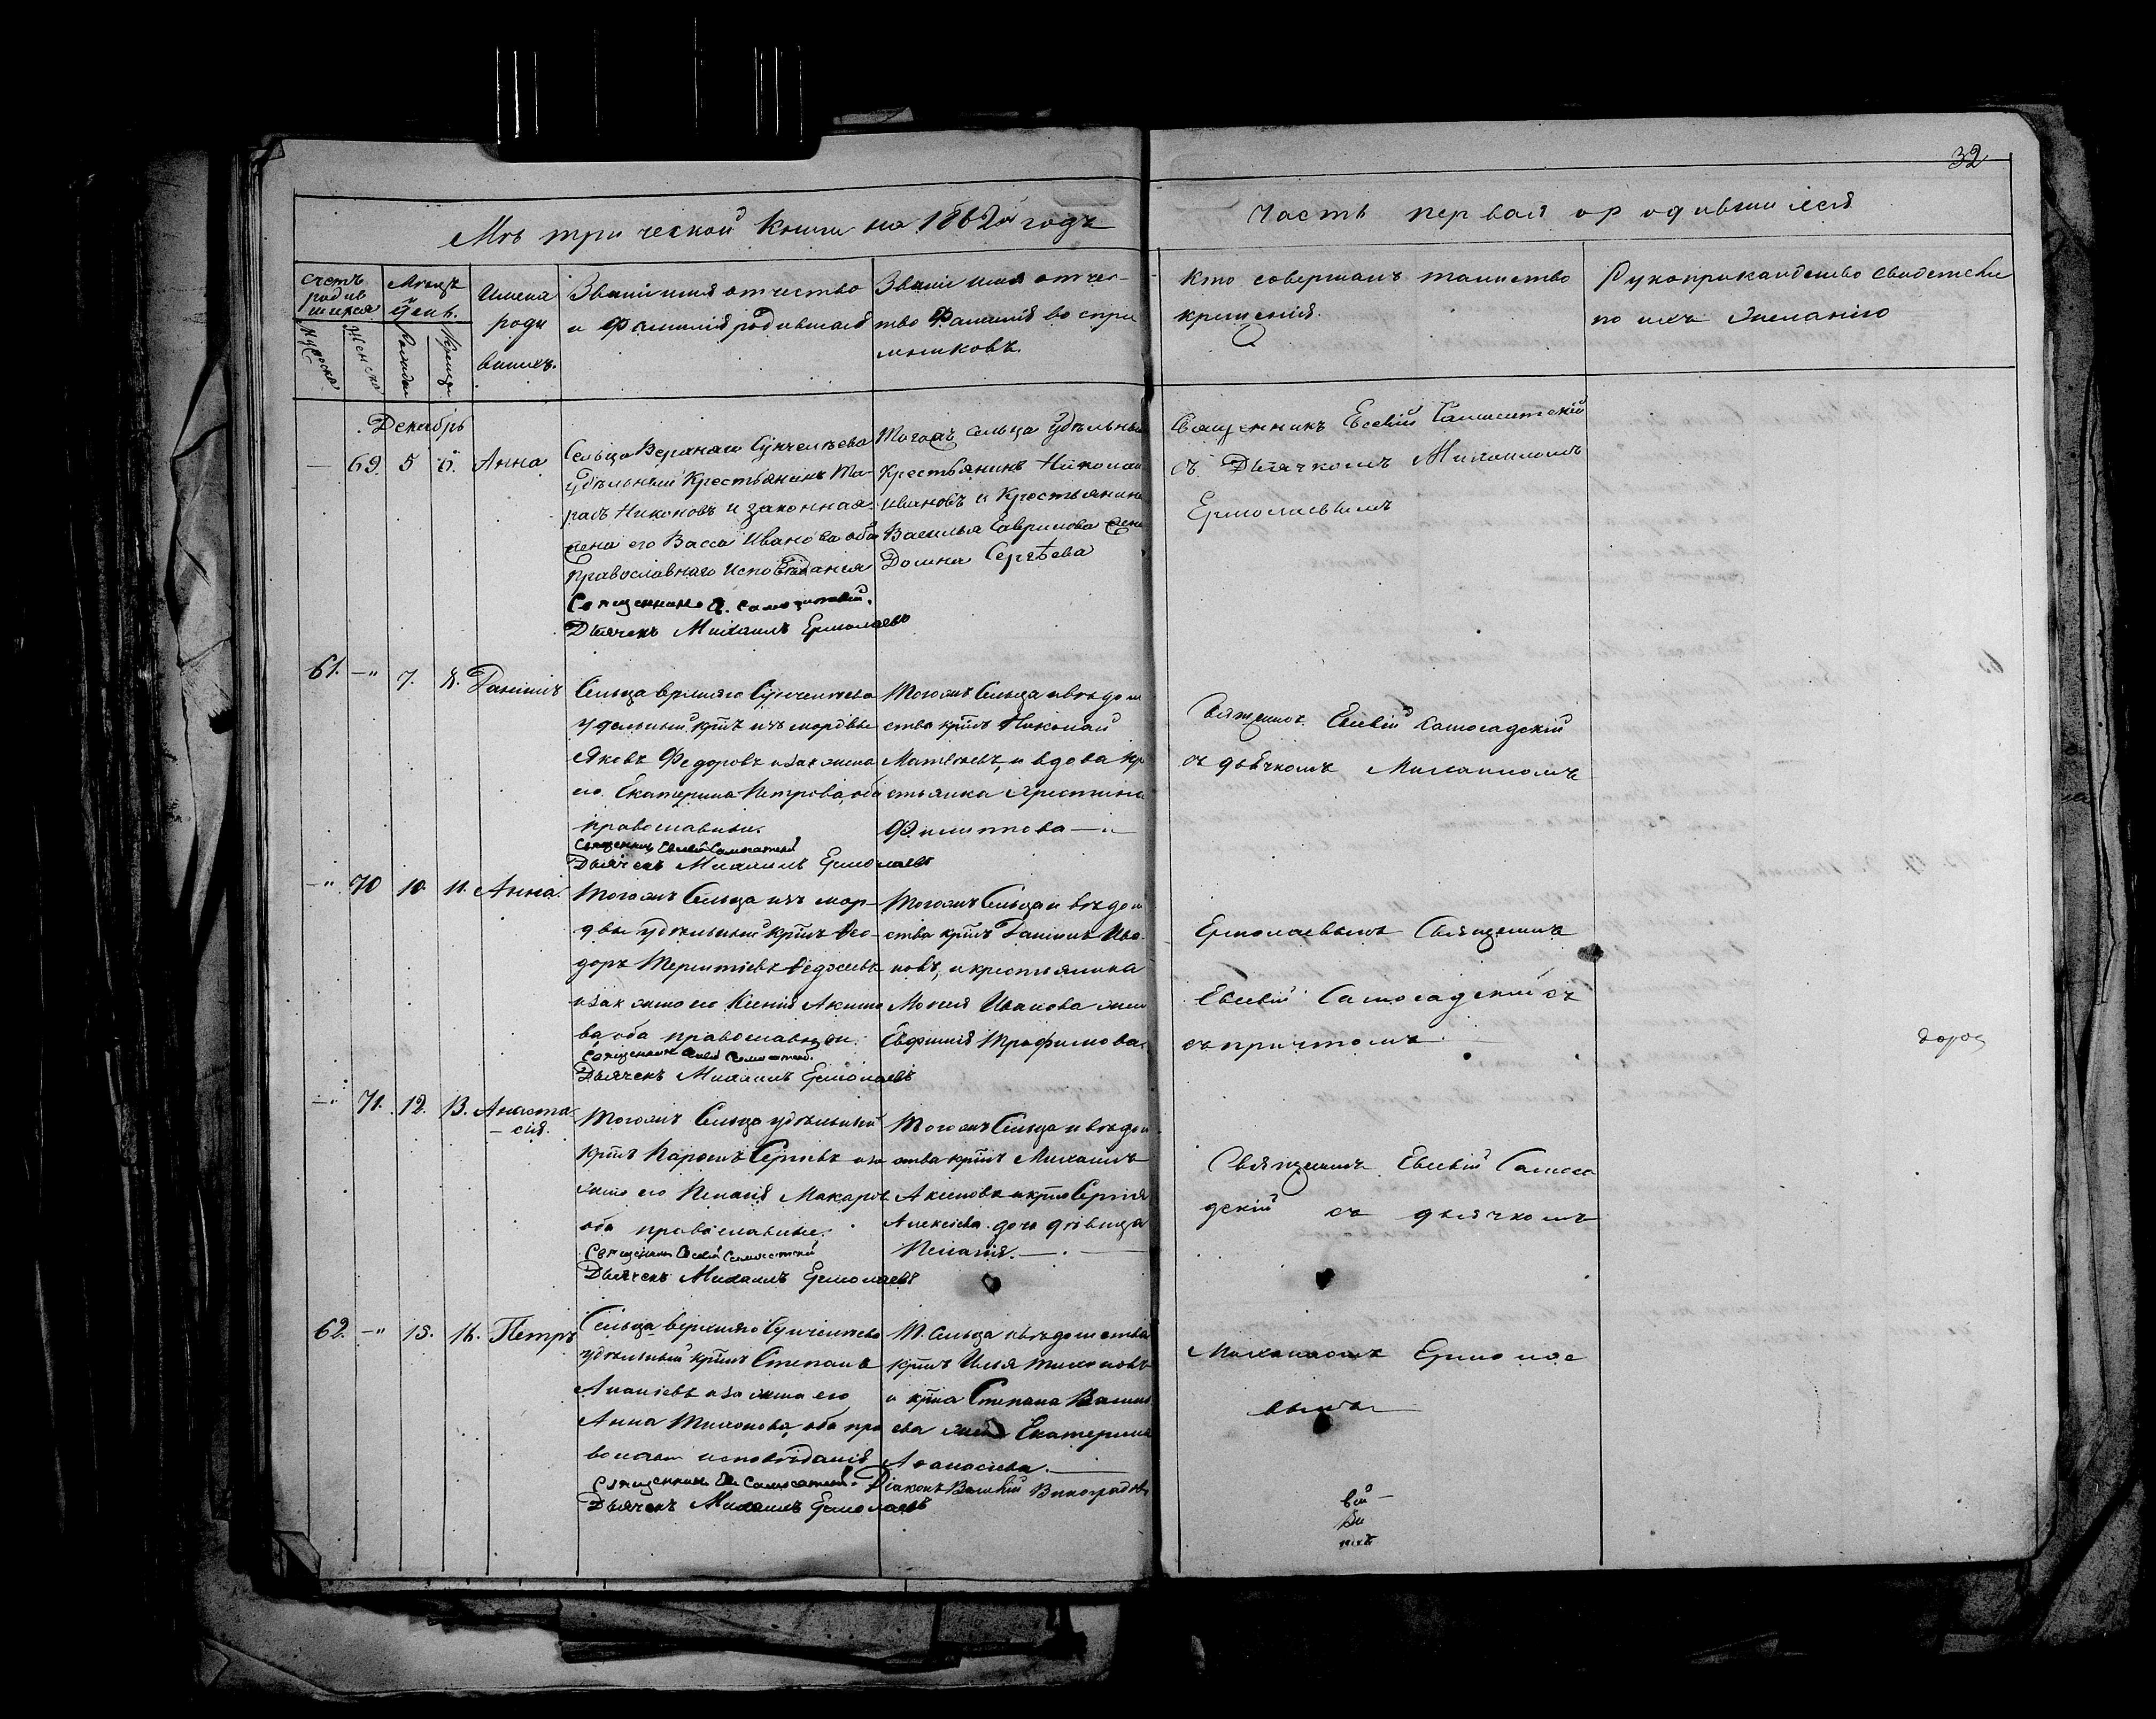 32
Метрической книги на 1862й годъ
Часть первая о родившихся
Счетъ родившихся
Мѣсяцъ и день.
Имена родившихъ.
Званіе имя отчество и Фамилія родившихся
Званіе имя отчество Фамилія воспріемниковъ.
Кто совершалъ таинство крещенія.
Рукоприкладство свидетелей по ихъ желанію
Мужеска
Женска
Рожденія
Крещенія
Декабрь
69. 5 6. Анна
Сельца Верхняго Сунчелѣева
удѣльный Крестьянинъ Та-
расъ Никоновъ и законная
жена его Васса Иванова оба
Православнаго исповѣданія
Дьячекъ Михаилъ Ермолаевъ
Тогожъ сельца удѣльный
Крестьянинъ Николай
Ивановъ и Крестьянина
Василья Гаврилова жена
Домна Сергѣева
Священникъ Евсевій
съ Дьячкомъ Михаиломъ
Ермолаевымъ
61. —" 7. 8. Даніилъ
Сельца Верхняго Сунчелѣева
удѣльный крнъ изъ мордвы
Яковъ Федоровъ и зак жена
его Екатерина Петрова, оба
православные.
Священникъ Евсевій
Дьячекъ Михаилъ Ермолаевъ
Тогожъ Сельца и вѣдом
ства крнъ Николай
Матвѣевъ, и вдова кр
стьянка Христина
Филиппова —"—
Священникъ Евсевій Самосадскій
съ дьячкомъ Михаиломъ
—" 70 10. 11. Анна.
Тогожъ Сельца изъ мор-
двы удѣльный крнъ Ѳео-
доръ Терентіевъ
и зак жена его Ксенія Акимо
ва оба православные.
Дьячекъ Михаилъ Ермолаевъ
Тогожъ Сельца и вѣдом
ства крнъ Даніилъ Ива-
новъ, и крестьянина
Моисея Иванова жена
Евфимія Трофимова.
Ермолаевымъ Священникъ
Евсевій Самосадскій съ
съ причтомъ.
дорос
—" 71. 12. 13. Анаста
— сія.
Тогожъ Сельца удѣльный
крнъ Карпъ Сергѣевъ и за
жена его Пелагія Макаров
оба православные.
Священникъ Евсевій
Дьячекъ Михаилъ Ермолаевъ
Тогожъ Сельца и вѣдом
ства крнъ Михаилъ
Аксеновъ и крна Сергія
Алексѣева дочь дѣвица
Пелагія. —.—
Священникъ Евсевій Самоса
дскій съ дьячкомъ
62. —" 15. 16. Петръ
Сельца Верхняго Сунчелѣева
удѣльный крнъ Степанъ
Ананіевъ и за жена его
Анна Тихонова, оба пра
вославн исповѣданія
Дьячекъ Михаилъ Ермолаевъ
Т. Сельца и вѣдомства
крнъ Илья Тихоновъ
и крна Степана Василь
ева жена Екатерина
Аѳанасіева.—
Діаконъ Василій Виноградовъ
Михаиломъ Ермолае
вымъ—